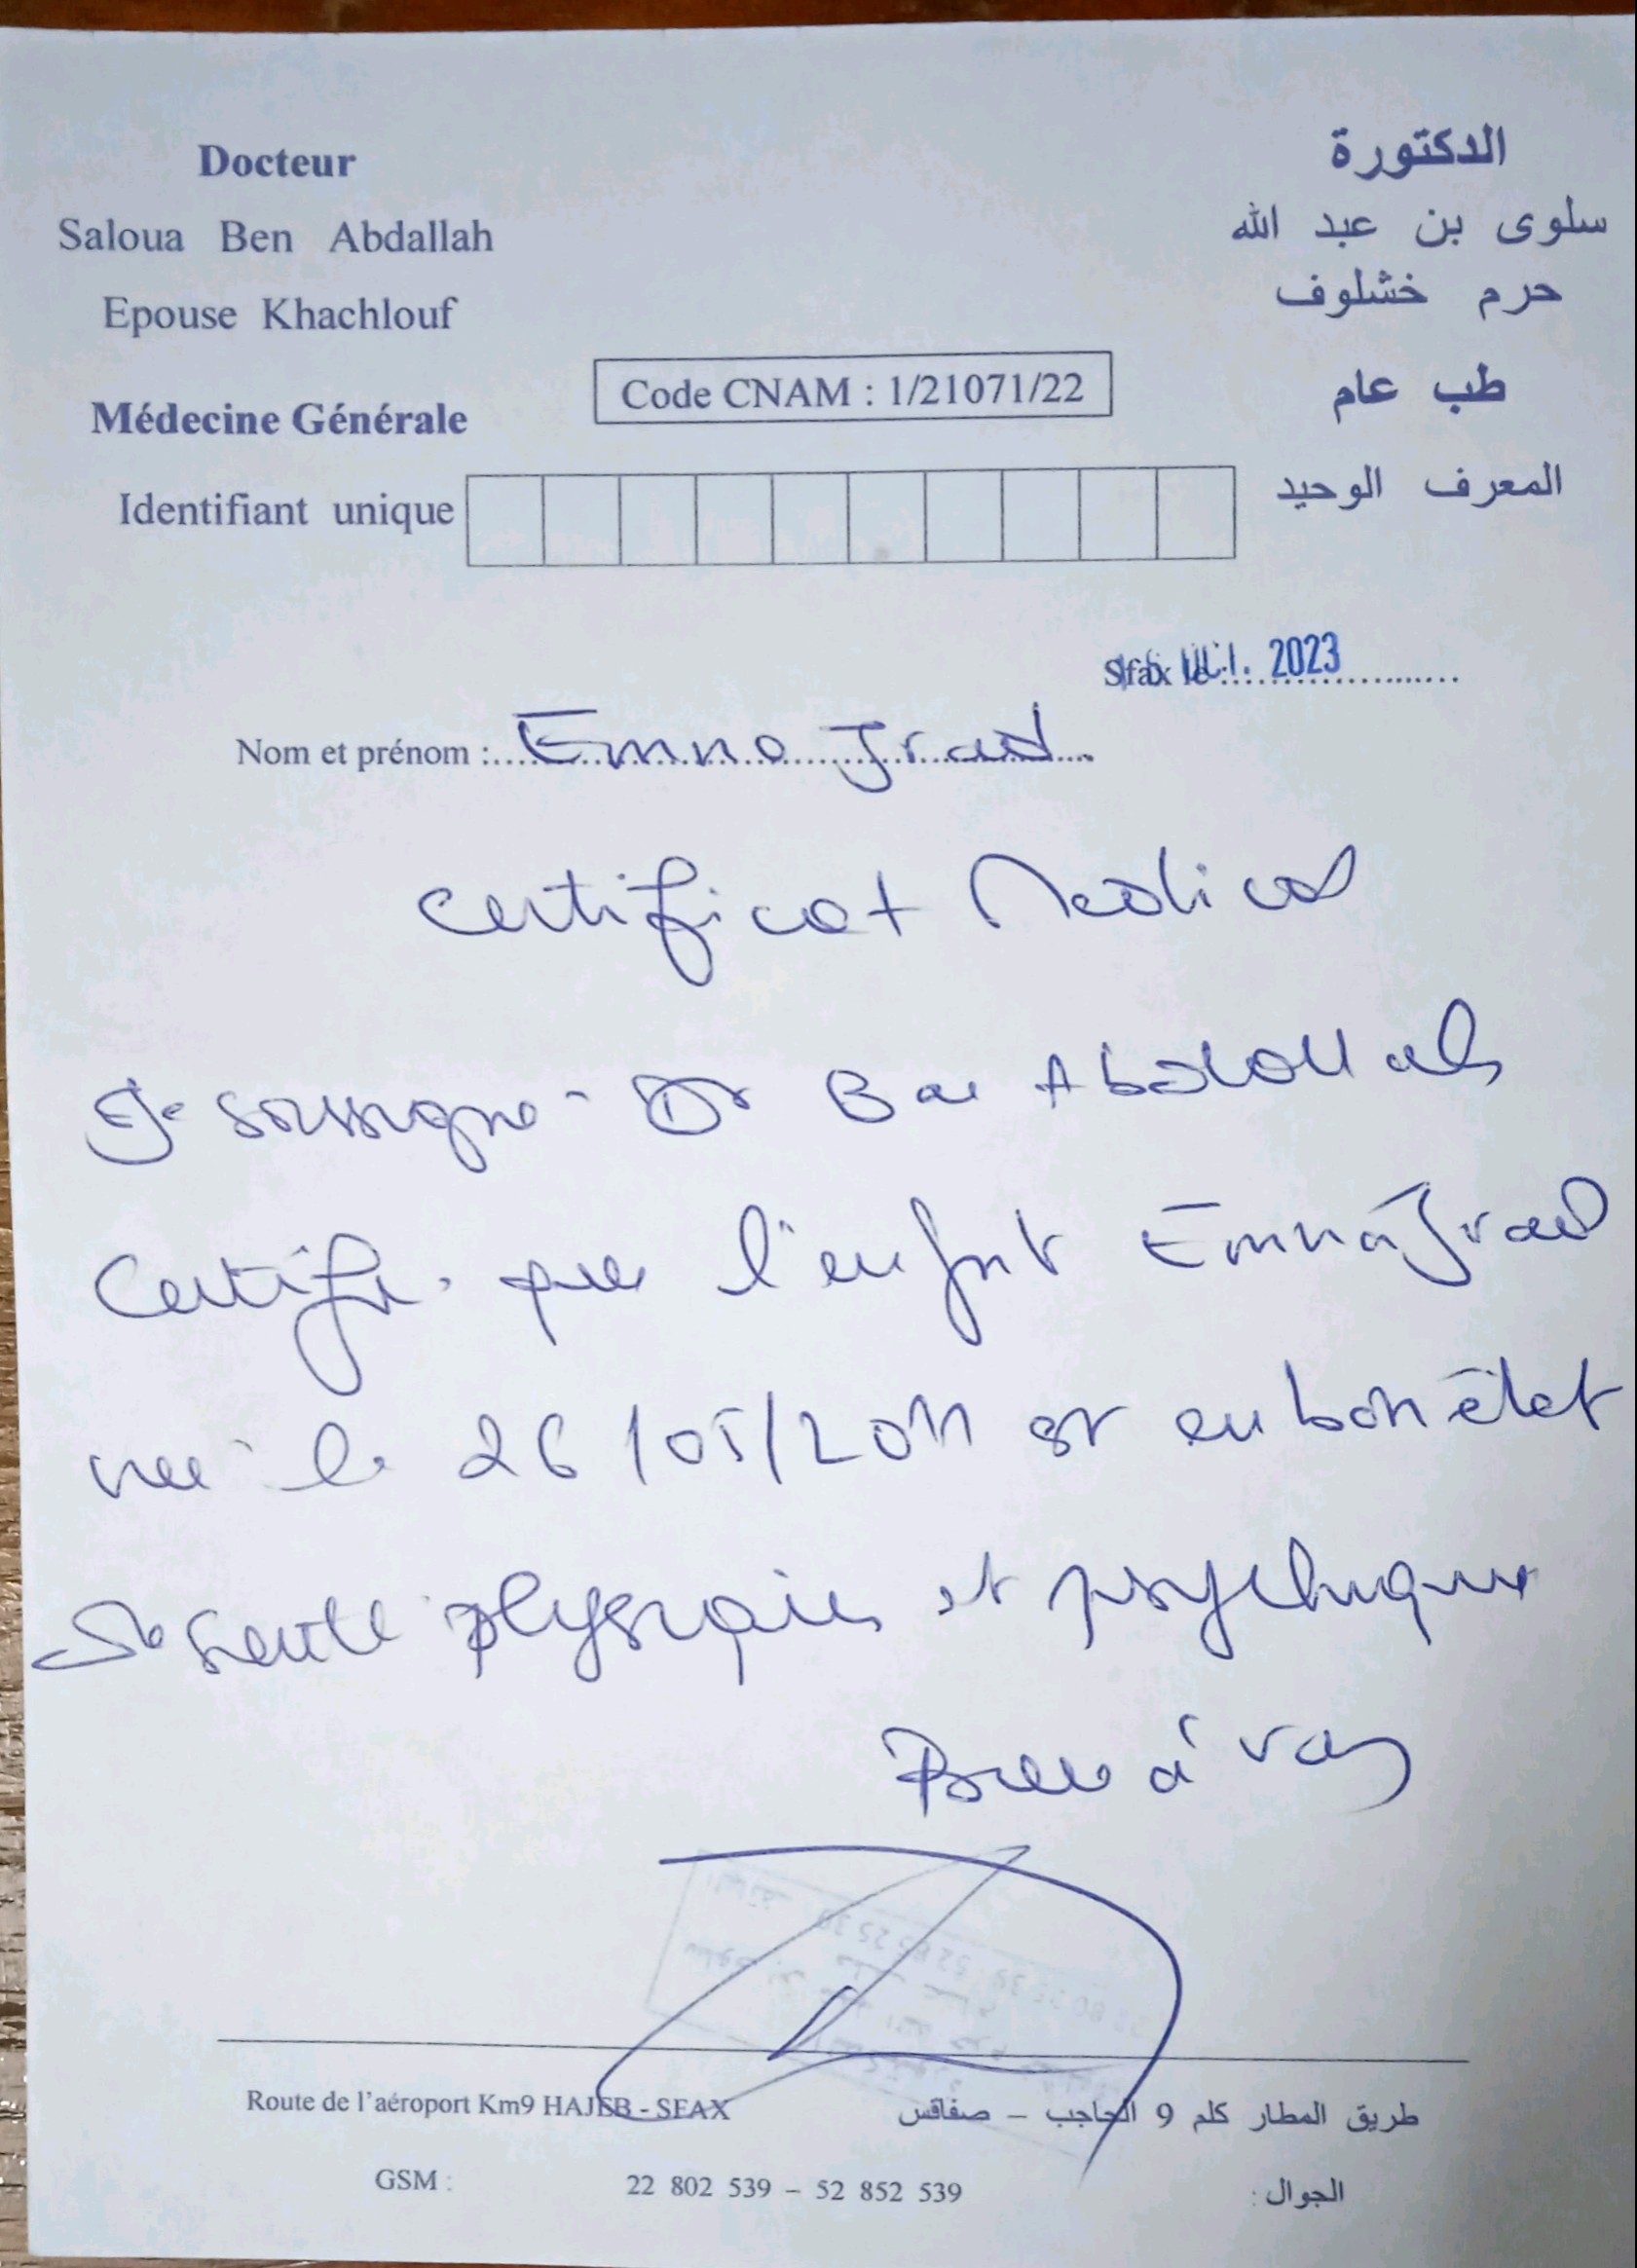 Docteur
Saloua Ben Abdallah
Epouse Khachlouf
Médecine Générale
Identifiant unique
Code CNAM : 1/21071/22
الدكتورة
سلوى بن عبد الله
حرم خشلوف
طب عام
المعرف الوحيد
Sfax le : 2023
Nom et prénom : Emna Jrad
Certificat Medical
Je soussigné Dr Ben Abdallah
Certifie que l'enfant Emna Jrad
née le 26/05/2011 est en bon état
de santé physique et psychique
à
Route de l'aéroport Km9 HAJEB - SFAX
طريق المطار كلم 9 الحاجب – صفاقس
GSM : 22 802 539 – 52 852 539 الجوال :